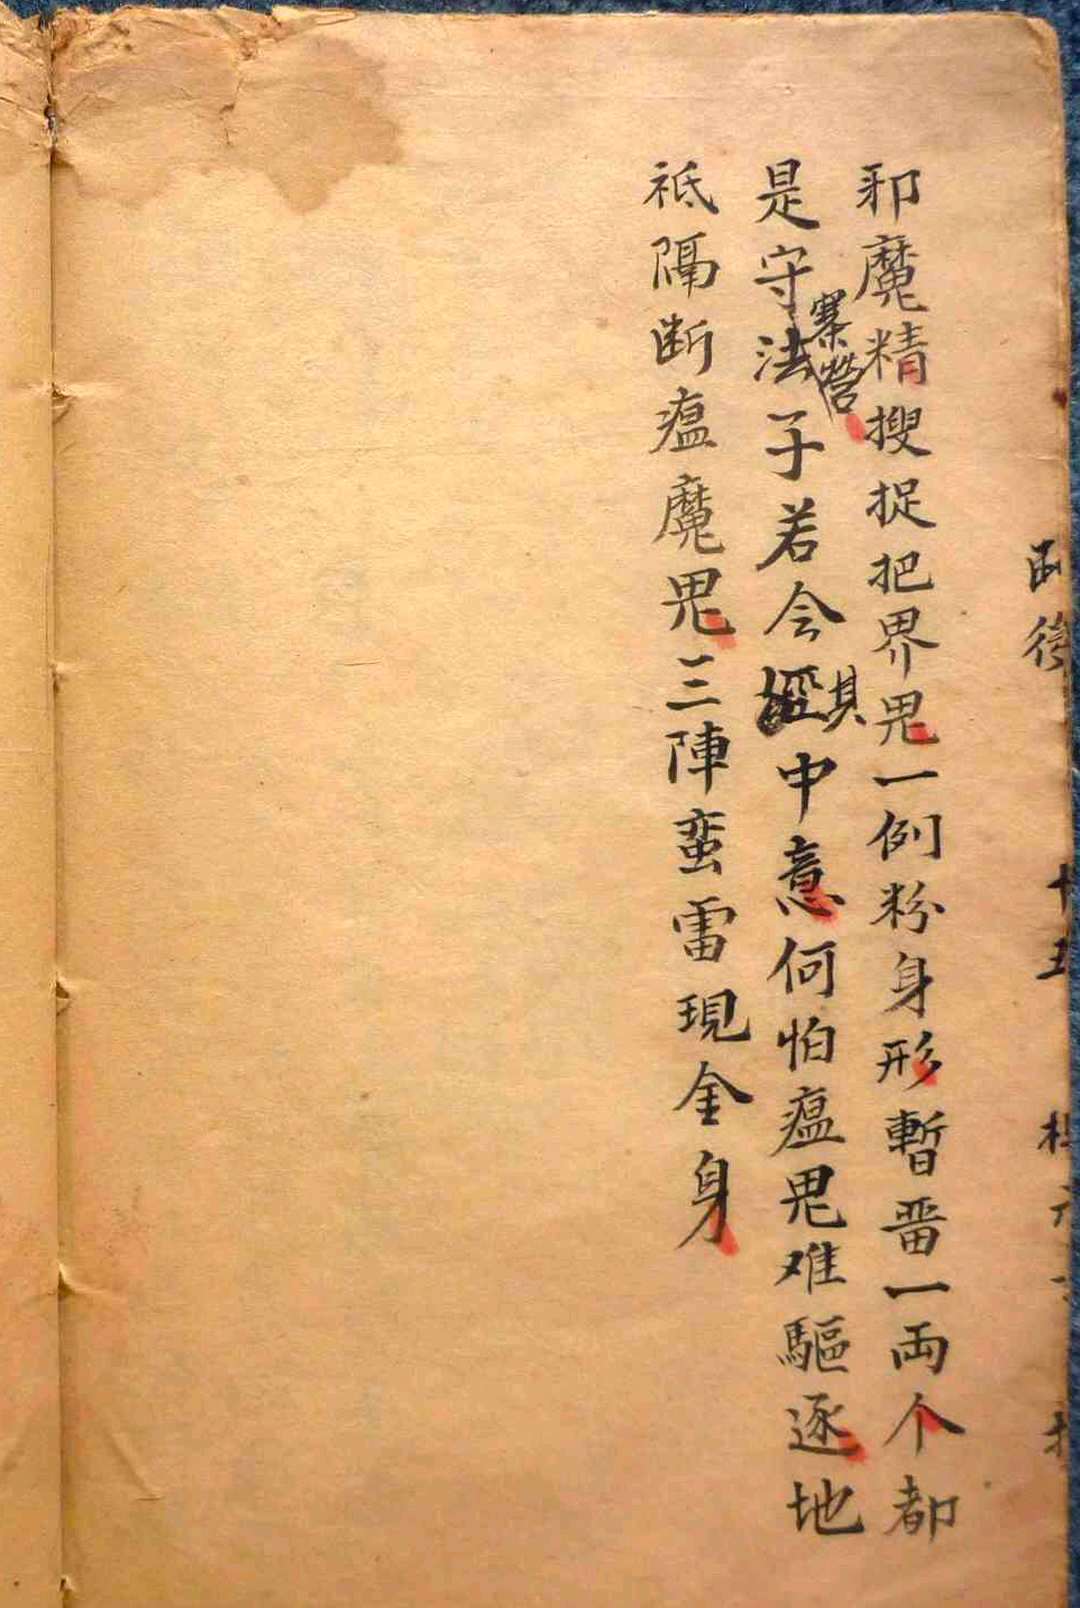 邪魔精搜捉把界鬼一例粉身形暫畱一両个都
是守寨营法子若会其中意何怕瘟鬼难驅逐地
祗隔断瘟魔鬼三陣蛮雷現金身